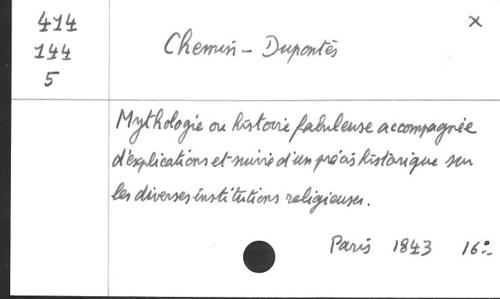 414
144
5
x
Chemin - Dupontès
Mythologie ou histoire fabuleuse accompagnée
d'explications et suivie d'un précis historique sur
les diverses institutions religieuses.
Paris 1843 16º